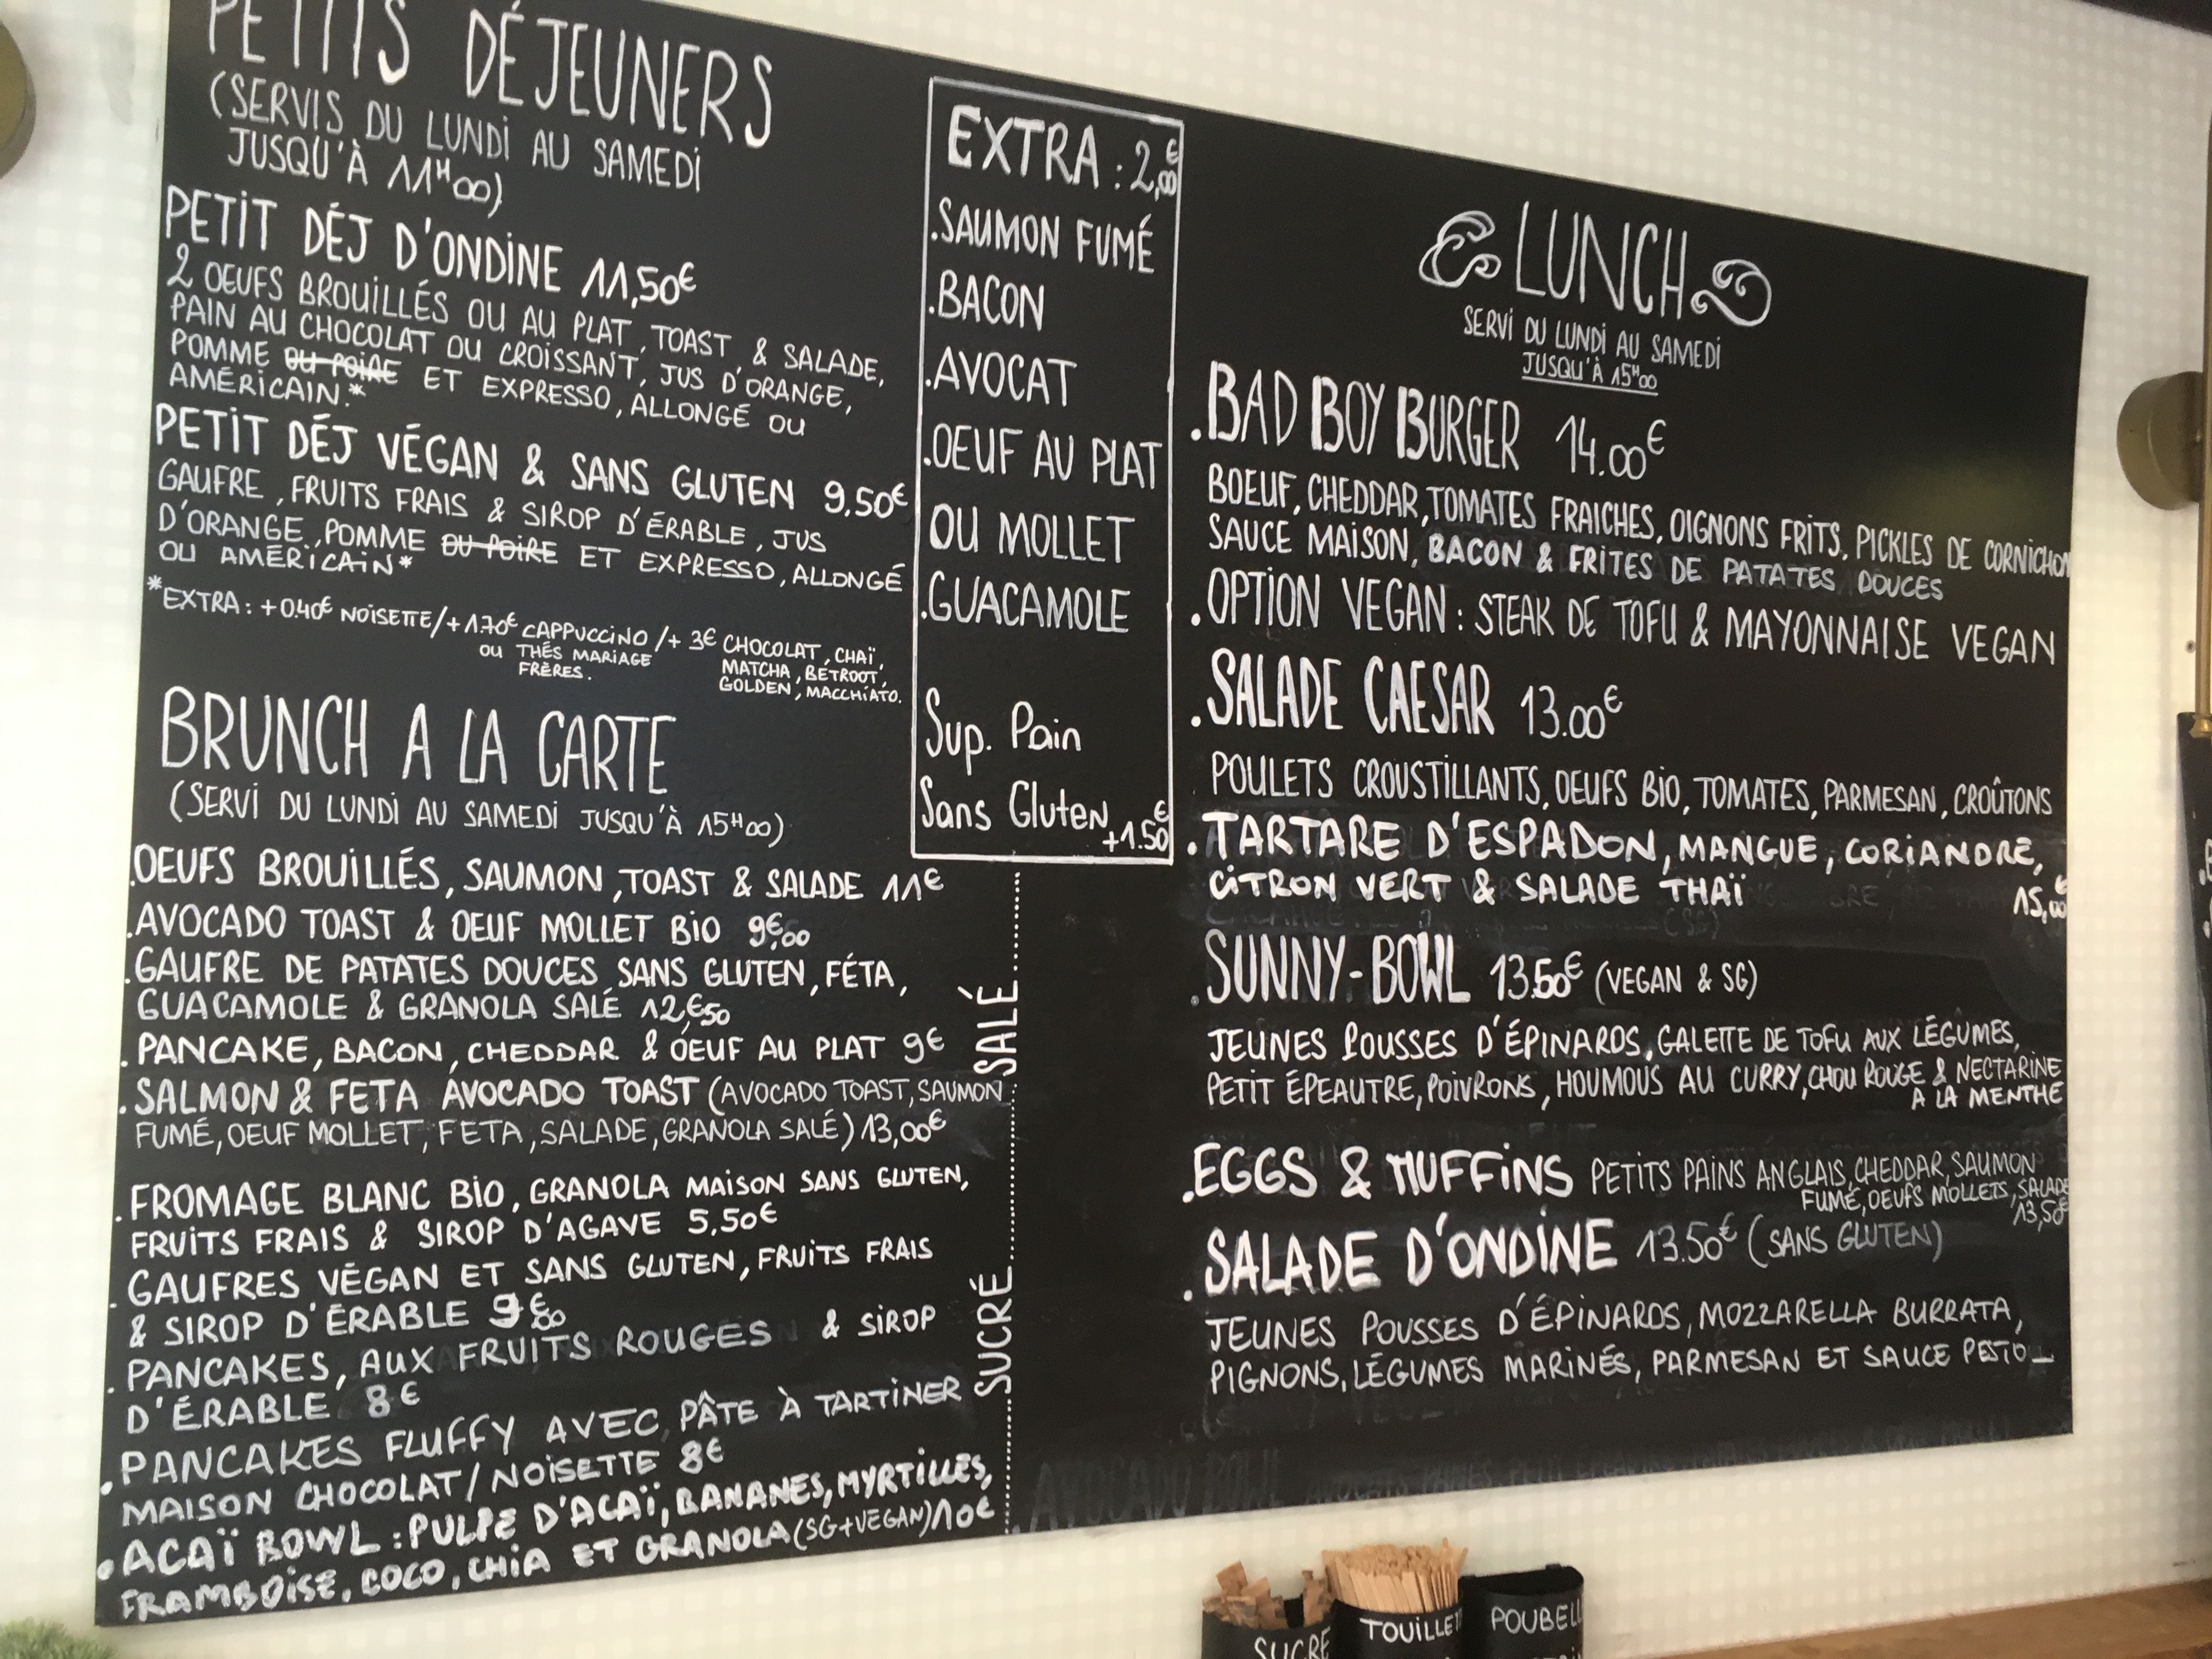 PETITS DÉJEUNERS
(SERVIS DU LUNDI AU SAMEDI
JUSQU'À 11H00)
PETIT DÉJ D'ONDINE 11,50€
2 OEUFS BROUILLÉS OU AU PLAT, TOAST & SALADE,
PAIN AU CHOCOLAT OU CROISSANT, JUS D'ORANGE,
POMME OU POIRE ET EXPRESSO, ALLONGÉ OU
AMÉRICAIN.*
PETIT DÉJ VÉGAN & SANS GLUTEN 9,50€
GAUFRE, FRUITS FRAIS & SIROP D'ÉRABLE, JUS
D'ORANGE, POMME OU POIRE ET EXPRESSO, ALLONGÉ
OU AMÉRICAIN*
*EXTRA: +0.40€ NOISETTE/+1.70€ CAPPUCCINO /+ 3€ CHOCOLAT, CHAÏ,
OU THÉS MARIAGE MATCHA, BETROOT,
FRÈRES. GOLDEN, MACCHIATO.
BRUNCH A LA CARTE
(SERVI DU LUNDI AU SAMEDI JUSQU'À 15H00)
.OEUFS BROUILLÉS, SAUMON, TOAST & SALADE 11€
.AVOCADO TOAST & OEUF MOLLET BIO 9€,00
.GAUFRE DE PATATES DOUCES SANS GLUTEN, FÉTA,
GUACAMOLE & GRANOLA SALÉ 12,€50
.PANCAKE, BACON, CHEDDAR & OEUF AU PLAT 9€
.SALMON & FETA AVOCADO TOAST (AVOCADO TOAST, SAUMON
FUMÉ, OEUF MOLLET, FETA, SALADE, GRANOLA SALÉ) 13,00€
SALÉ
.FROMAGE BLANC BIO, GRANOLA MAISON SANS GLUTEN,
FRUITS FRAIS & SIROP D'AGAVE 5,50€
.GAUFRES VÉGAN ET SANS GLUTEN, FRUITS FRAIS
& SIROP D'ÉRABLE 9€
.PANCAKES, AUX FRUITS ROUGES & SIROP
D'ÉRABLE 8€
.PANCAKES FLUFFY AVEC PÂTE À TARTINER
MAISON CHOCOLAT/NOISETTE 8€
.ACAÏ BOWL : PULPE D'ACAÏ, BANANES, MYRTILLES,
FRAMBOISE, COCO, CHIA ET GRANOLA (SG+VEGAN) 10€
SUCRÉ
EXTRA : 2,00€
.SAUMON FUMÉ
.BACON
.AVOCAT
.OEUF AU PLAT
OU MOLLET
.GUACAMOLE
Sup. Pain
Sans Gluten +1.50€
LUNCH
SERVI DU LUNDI AU SAMEDI
JUSQU'À 15H00
.BAD BOY BURGER 14.00€
BOEUF, CHEDDAR, TOMATES FRAICHES, OIGNONS FRITS, PICKLES DE CORNICHON
SAUCE MAISON, BACON & FRITES DE PATATES DOUCES
.OPTION VEGAN : STEAK DE TOFU & MAYONNAISE VEGAN
.SALADE CAESAR 13.00€
POULETS CROUSTILLANTS, OEUFS BIO, TOMATES, PARMESAN, CROÛTONS
.TARTARE D'ESPADON, MANGUE, CORIANDRE,
CITRON VERT & SALADE THAÏ 15,00€
.SUNNY-BOWL 13.50€ (VEGAN & SG)
JEUNES POUSSES D'ÉPINARDS, GALETTE DE TOFU AUX LÉGUMES,
PETIT ÉPEAUTRE, POIVRONS, HOUMOUS AU CURRY, CHOU ROUGE & NECTARINE
A LA MENTHE
.EGGS & MUFFINS PETITS PAINS ANGLAIS, CHEDDAR, SAUMON
FUMÉ, OEUFS MOLLETS, SALADE
13,50€
.SALADE D'ONDINE 13.50€ (SANS GLUTEN)
JEUNES POUSSES D'ÉPINARDS, MOZZARELLA BURRATA,
PIGNONS, LÉGUMES MARINÉS, PARMESAN ET SAUCE PESTO_
AVOCADO BOWL
SUCRE
TOUILLET
POUBEL